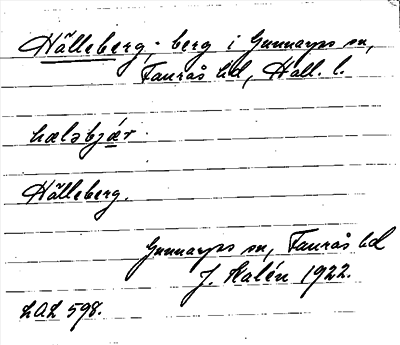 Hälleberg; berg i Gunnarps sn,
Faurås hd, Hall. l.
hælsbjær.
Hälleberg.
Gunnarps sn, Faurås hd
J. Kalén 1922.
LAL 598.